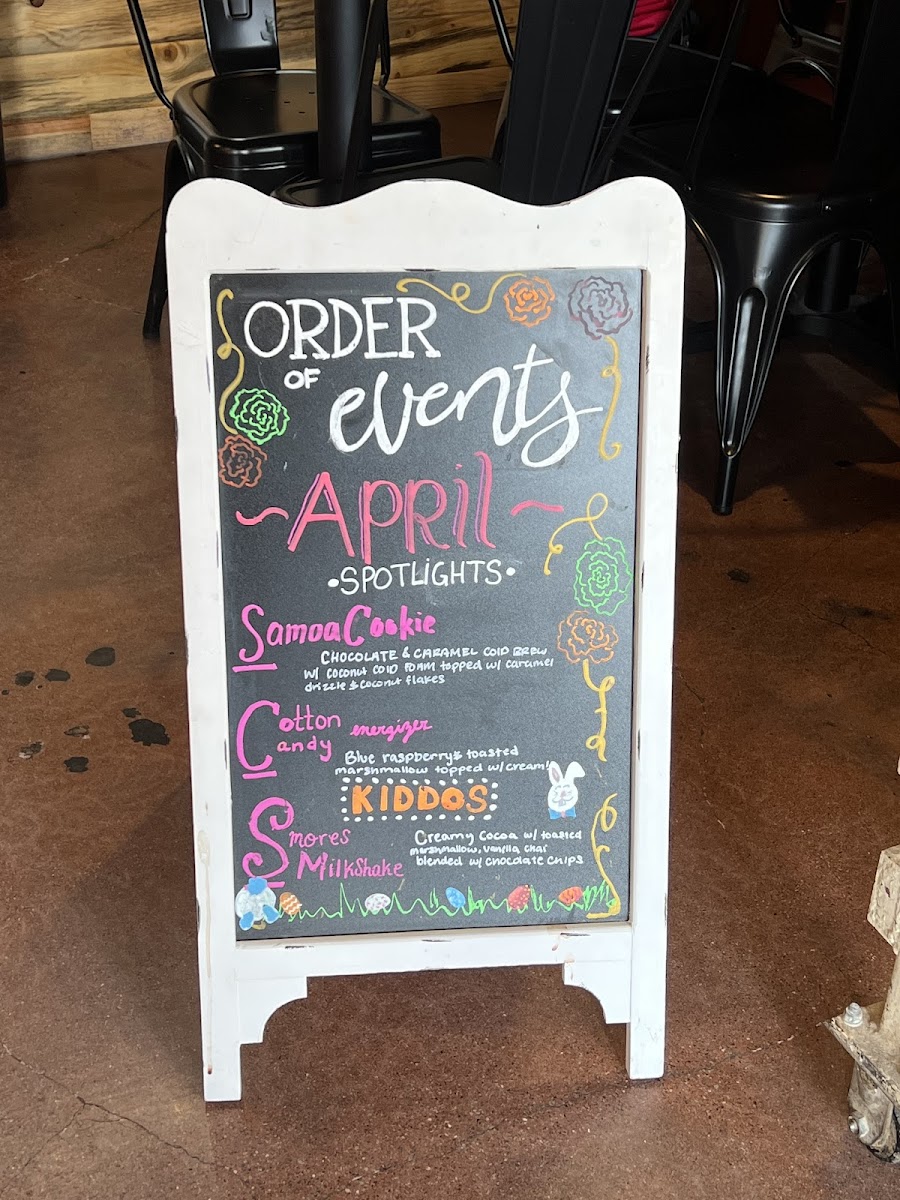 ORDER
OF
events
~APRil~
•SPOTLiGHTS•
Samoa Cookie
CHOCOLATE & CARAMEL COLD BREW
W/ COCONUT COLD FOAM topped w/ caramel
drizzle & coconut flakes
Cotton
Candy energizer
Blue raspberry & toasted
marshmallow topped w/ cream!
KIDDOS
Smores
MilkShake
Creamy Cocoa w/ toasted
marshmallow, vanilla, chai
blended w/ chocolate chips